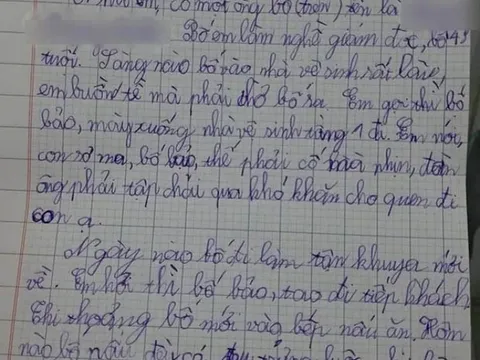 có một ông bố (trẻ) tên là
Bố em làm nghề giám đốc, bố 43
tuổi. Sáng nào bố vào nhà vệ sinh rất lâu,
em buồn tè mà phải chờ bố ra. Em gọi thì bố
bảo, mày xuống nhà vệ sinh tầng 1 đi. Em nói,
con sợ ma, bố bảo, thế phải cố mà nhịn, đàn
ông phải tập chải qua khó khăn cho quen đi
con ạ.
Ngày nào bố đi làm tận khuya mới
về. Em hỏi thì bố bảo, tao đi tiếp khách.
Thi thoảng bố mới vào bếp nấu ăn. Hôm
nào bố nấu